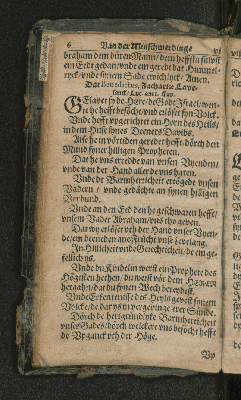 6 Van der Menschwerdinge
braham dem düren Manne/ dem hefftu sülvest
ein Eedt gedan/ unde em geredet dat Himmel-
ryck/ unde synem Sade ewichlyck/ Amen.
Dat Benedictus, Zachariæ Lave-
sanck/ Luc. am 1. Cap.
Gelavet sy de Here/ de Godt Israel/ wen-
te he hefft besöcht/ unde erlöset syn Volck.
Unde hefft upgerichtet ein Horn des Heils/
in dem Huse synes Deeners Davids.
Alse he in vörtiden geredet hefft/ dörch den
Mundt syner hilligen Propheten.
Dat he uns erredde van unsen Vyenden/
unde van der Handt aller de uns haten.
Unde de Barmherticheit ertögede unsen
Vadern/ unde gedächte an synen hilligen
Vorbundt.
Unde an den Eed den he geschwaren hefft/
unsem Vader Abraham/ uns tho geven.
Dat wy erlöset uth der Handt unser Vyen-
de/ em deeneden ane Früchte unse Levelang.
In Hillicheit unde Gerechticheit/ de em ge-
fellich ys.
Unde du Kindelin werst ein Prophete des
Högesten heiten/ du werst vör dem HEREN
hergahn/ dat du synen Wech beredest.
Unde Erkentenisse des Heyls gevest synem
Volcke/ de dar ys in vergevinge erer Sünde.
Dörch de hertgrundtyke Barmherticheit
unses Gades/ dörch welckere uns besöcht hefft
de Upganck uth der Höge.
Up